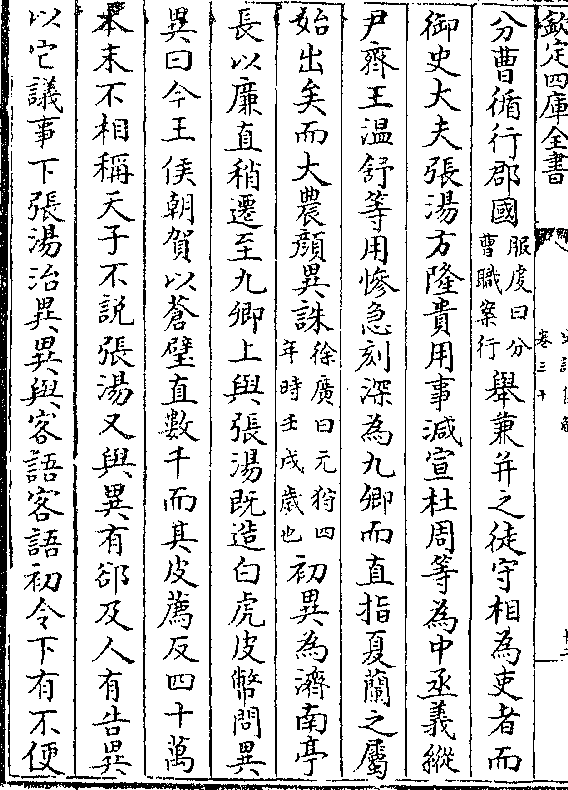 欽定四庫全書
卷三十
分曹循行郡國服䖍曰分曹職案行舉兼并之徒守相為吏者而
御史大夫張湯方隆貴用事減宣杜周等為中丞義縱
尹齊王溫舒等用慘急刻深為九卿而直指夏蘭之屬
始出矣而大農顔異誅徐廣曰元狩四年時壬戌歲也初異為濟南亭
長以廉直稍遷至九卿上與張湯既造白虎皮幣問異
異曰今王侯朝賀以蒼璧直數千而其皮薦反四十萬
本末不相稱天子不説張湯又與異有郤及人有告異
以它議事下張湯治異異與客語客語初令下有不便